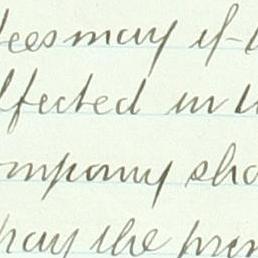 tees may if
ffected in
ompany sha
pay the prem